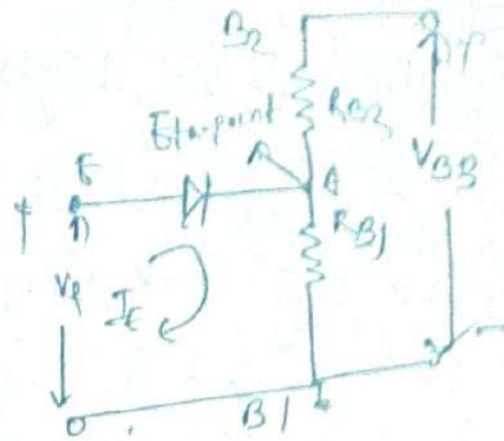 B2
RB2
Eta-point
A
A
VBB
E
+
RB1
VE
IE
B1